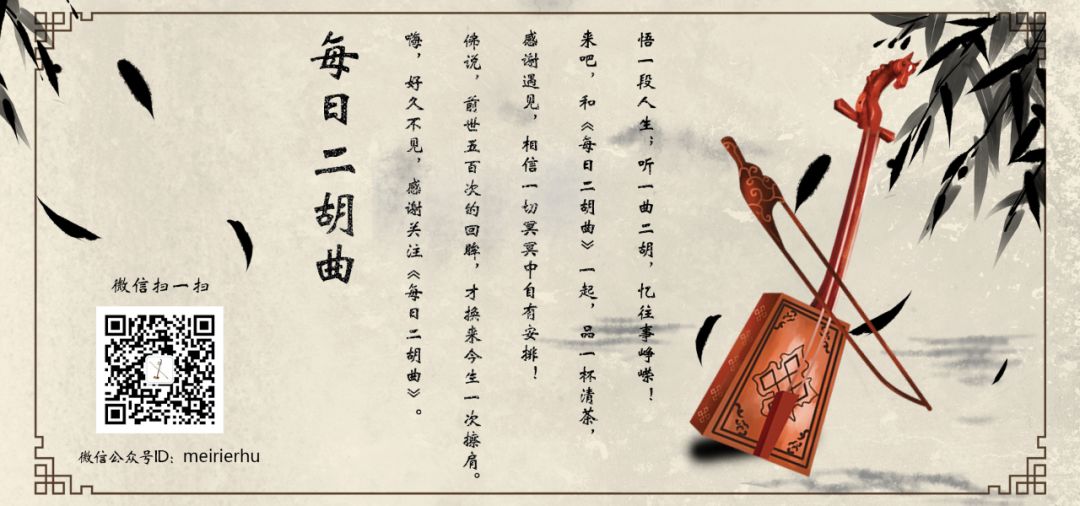 每日二胡曲
嗨，好久不见，感谢关注《每日二胡曲》。
佛说，前世五百次的回眸，才换来今生一次擦肩。
感谢遇见，相信一切冥冥中自有安排！
来吧，和《每日二胡曲》一起，品一杯清茶，
悟一段人生；听一曲二胡，忆往事峥嵘！
微信扫一扫
微信公众号ID：meirierhu